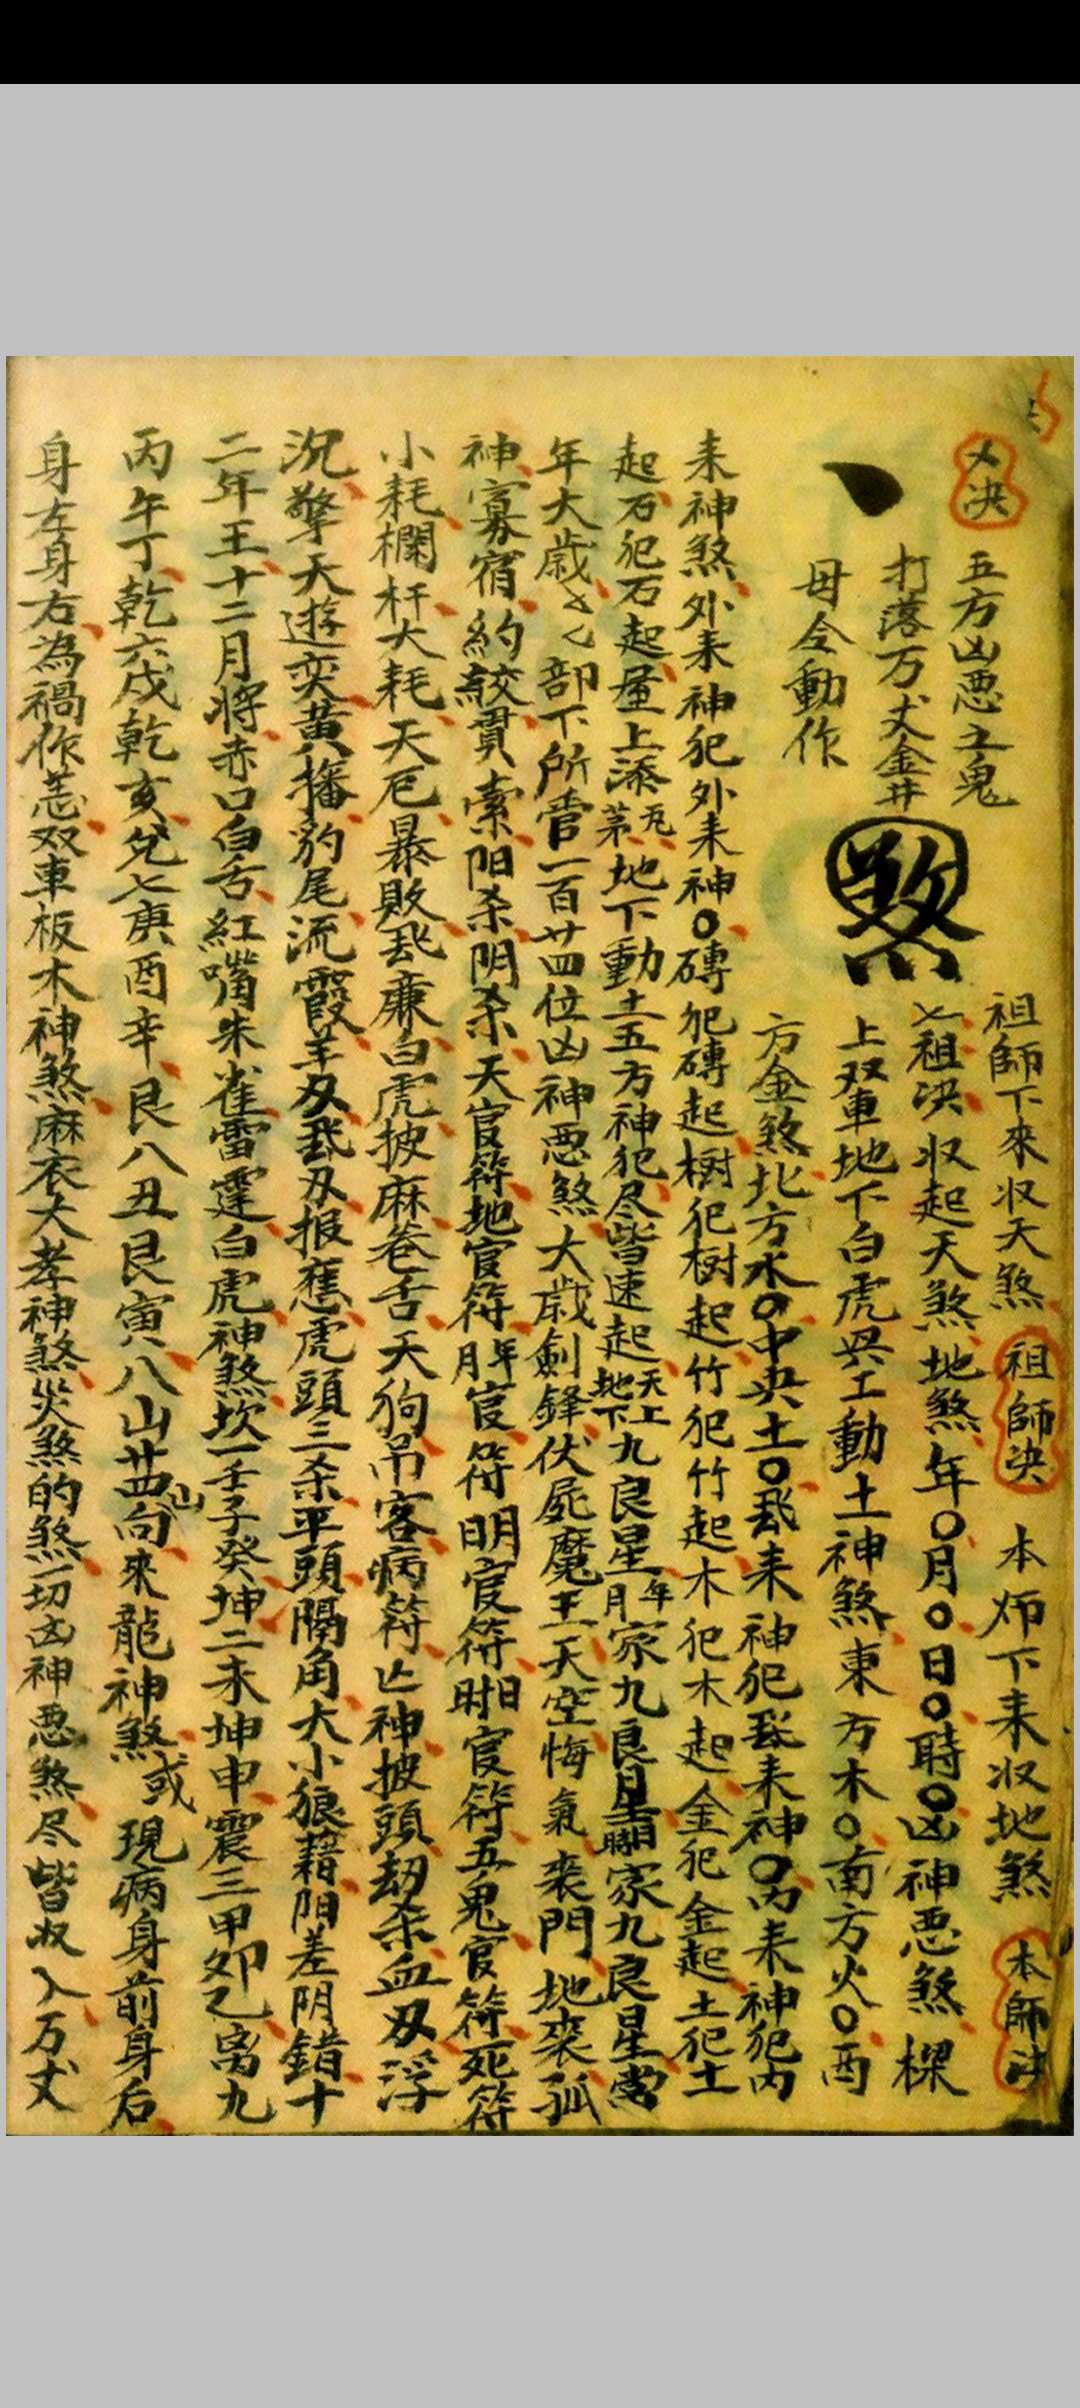 乂决
五方凶恶土鬼
打落万丈金井
毋令動作
煞
祖師下來収天煞 祖師决 本师下来収地煞 本師决
七祖决収起天煞地煞年〇月〇日〇時〇凶神恶煞樑
上双車地下白虎異工動土神煞東方木〇南方火〇酉
方金煞北方水〇中央土〇飛来神犯飛来神〇内来神犯内
来神煞外来神犯外来神〇磚犯磚起樹犯樹起竹犯竹起木犯木起金犯金起土犯土
起石犯石起屋上添茅瓦地下動土五方神犯尽皆速起天上地下九良星年月家九良星日時家九良星當
年大歲々七部下所管一百廿四位凶神恶煞大歲劍鋒伏屍魔王天空悔氣丧門地丧孤
神寡宿約絞貫索陽杀阴杀天官符地官符年月官符明官符日時官符五鬼官符死符
小耗欄杆大耗天厄暴敗飛廉白虎披麻卷舌天狗吊客病符亡神披頭劫杀血刄浮
沉擎天遊奕黄旛豹尾流霞羊刄飛刄报應虎頭三杀平頭隔角大小狼藉陽差阴錯十
二年王十二月將赤口白舌紅嘴朱雀雷霆白虎神煞坎一壬子癸坤二未坤申震三甲卯乙离九
丙午丁乾六戌乾亥兌七庚酉辛艮八丑艮寅八山廿四山向來龍神煞或現病身前身后
身左身右為禍作恙双車板木神煞麻衣大孝神煞災煞的煞一切凶神恶煞尽皆収入万丈